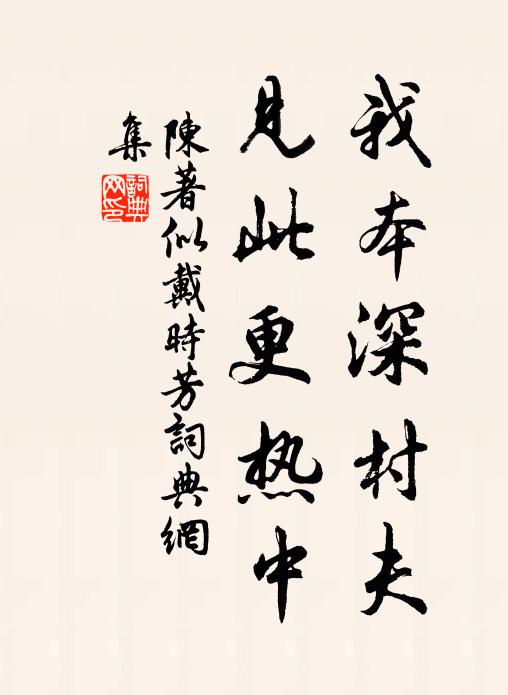 我本深村夫
見此更热中
陳著似戴時芳詞典網
集
詞典
网印